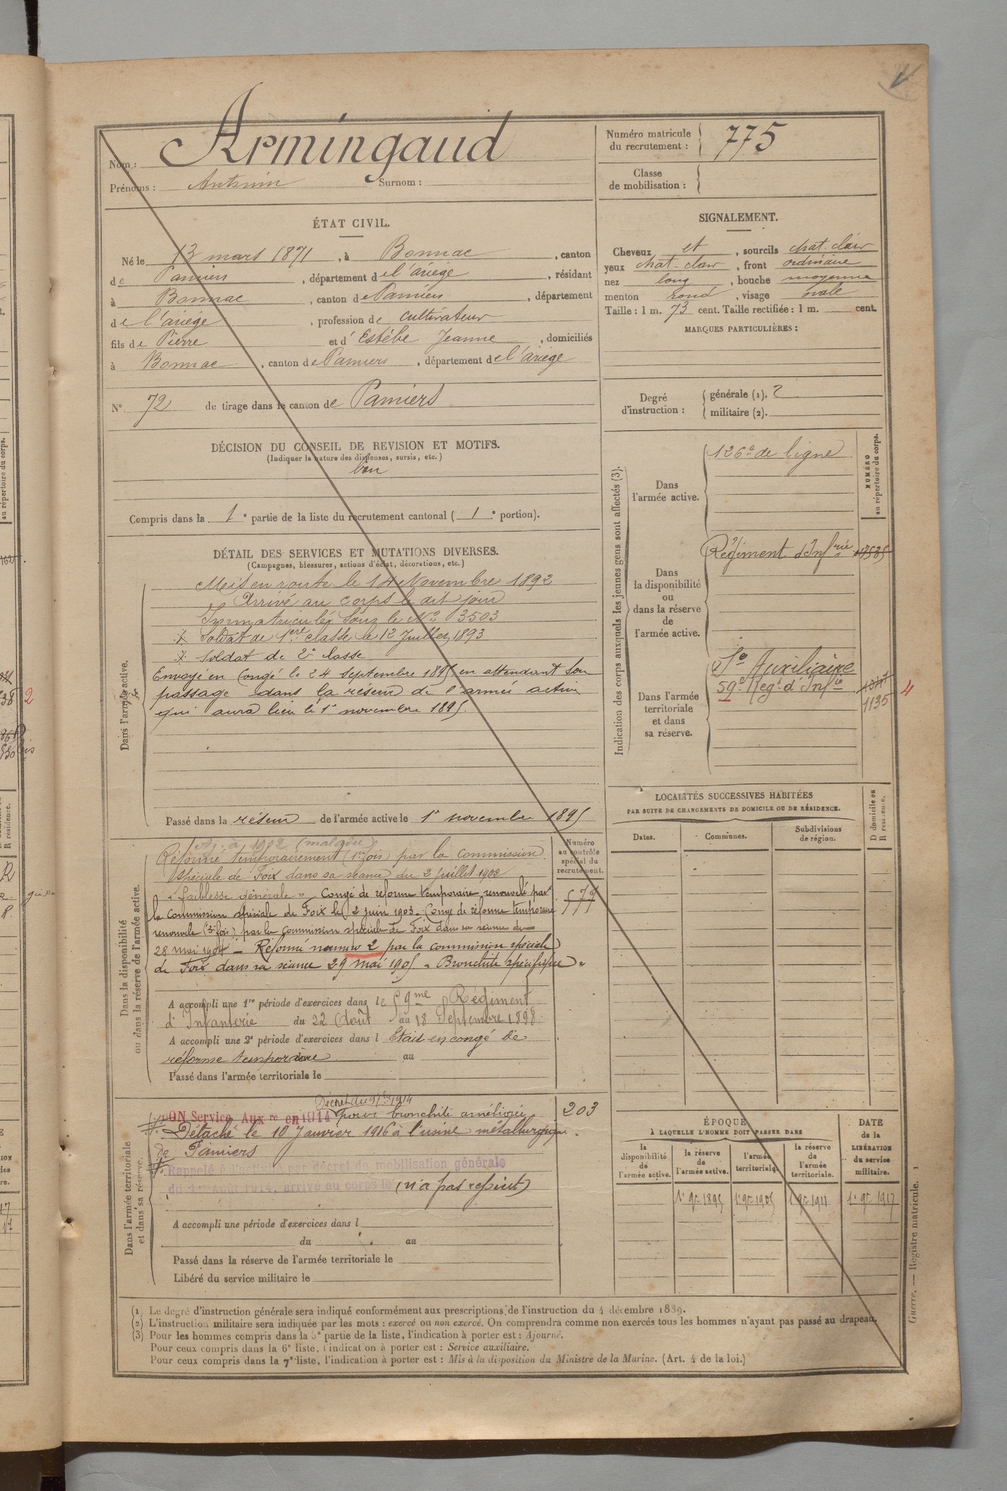 Nom : Armingaud
Prénoms : Antonin Surnom :
Numéro matricule du recrutement : 775
Classe de mobilisation :
ÉTAT CIVIL.
Né le 13 mars 1871, à Bonnac, canton
de Pamiers, département de l'ariège, résidant
à Bonnac, canton de Pamiers, département
de l'ariège, profession de cultivateur
fils de Pierre et d'Estèbe Jeanne, domiciliés
à Bonnac, canton de Pamiers, département de l'ariège
N° 72 de tirage dans le canton de Pamiers
SIGNALEMENT.
Cheveux et, sourcils chat. clair
yeux chat. clair, front ordinaire
nez long, bouche moyenne
menton rond, visage ovale
Taille : 1 m. 73 cent. Taille rectifiée : 1 m. cent.
MARQUES PARTICULIÈRES :
Degré d'instruction : générale (1). 2
militaire (2).
DÉCISION DU CONSEIL DE REVISION ET MOTIFS.
(Indiquer la nature des dispenses, sursis, etc.)
bon
Compris dans la 1e partie de la liste du recrutement cantonal (1e portion).
DÉTAIL DES SERVICES ET MUTATIONS DIVERSES.
(Campagnes, blessures, actions d'éclat, décorations, etc.)
Dans l'armée active.
Mis en route le 14 Novembre 1892
Arrivé au corps le dit jour
Immatriculé sous le No 3503
Soldat de 1ère classe le 12 Juillet 1893
Soldat de 2e classe
Envoyé en Congé le 24 septembre 1895 en attendant son
passage dans la réserve de l'armée active
qui aura lieu le 1er novembre 1895
Passé dans la réserve de l'armée active le 1er novembre 1895
Indication des corps auxquels les jeunes gens sont affectés (3).
NUMÉRO au répertoire du corps.
Dans l'armée active.
126e de ligne
Dans la disponibilité ou dans la réserve de l'armée active.
Régiment d'Infrie
Dans l'armée territoriale et dans sa réserve.
Sce Auxiliaire
59e Regt d'Infie
1135
4
LOCALITÉS SUCCESSIVES HABITÉES
PAR SUITE DE CHANGEMENTS DE DOMICILE OU DE RÉSIDENCE.
Dates. Communes. Subdivisions de région. D domicile ou R résidence.
Dans la disponibilité ou dans la réserve de l'armée active.
Numéro au contrôle spécial du recrutement.
1902 (malade)
Réformé temporairement (1ere fois) par la commission
spéciale de Foix dans sa séance du 2 juillet 1902
"faiblesse générale" Congé de réforme temporaire renouvelé par
la Commission spéciale de Foix le 2 juin 1903. Congé de réforme temporaire
renouvelé (3e fois) par la Commission spéciale de Foix dans sa séance du
28 mai 1904 — Réformé numéro 2 par la commission spéciale
de Foix dans sa séance 29 mai 1905 "Bronchite spécifique"
A accompli une 1re période d'exercices dans le 59me Régiment
d'Infanterie du 22 Août au 18 Septembre 1898
A accompli une 2e période d'exercices dans l Etait en congé de
réforme temporaire au
Passé dans l'armée territoriale le
Dans l'armée territoriale et dans sa réserve.
BON Service Auxre en 1914 pour bronchite améliorée
203
Détaché le 10 Janvier 1916 à l'usine métallurgique
de Pamiers
Rappelé à l'activité par décret de mobilisation générale
du 1er août 1914, arrivé au corps le (n'a pas rejoint)
A accompli une période d'exercices dans l
du au
Passé dans la réserve de l'armée territoriale le
Libéré du service militaire le
ÉPOQUE
À LAQUELLE L'HOMME DOIT PASSER DANS
la disponibilité de l'armée active. la réserve de l'armée active. l'armée territoriale. la réserve de l'armée territoriale.
DATE de la LIBÉRATION du service militaire.
1er 9e 1895 1er 9e 1905 1er 9e 1911 1er 9e 1917
(1) Le degré d'instruction générale sera indiqué conformément aux prescriptions de l'instruction du 4 décembre 1889.
(2) L'instruction militaire sera indiquée par les mots : exercé ou non exercé. On comprendra comme non exercés tous les hommes n'ayant pas passé au drapeau.
(3) Pour les hommes compris dans la 5e partie de la liste, l'indication à porter est : Ajourné.
Pour ceux compris dans la 6e liste, l'indication à porter est : Service auxiliaire.
Pour ceux compris dans la 7e liste, l'indication à porter est : Mis à la disposition du Ministre de la Marine. (Art. 4 de la loi.)
Guerre. — Registre matricule. 1